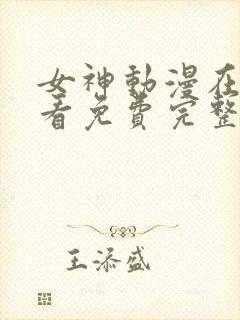 女神動漫在
看免費完整
王添盛